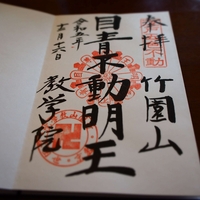 奉拝
竹園山
目青不動明王
教学院
令和五年
十二月十六日